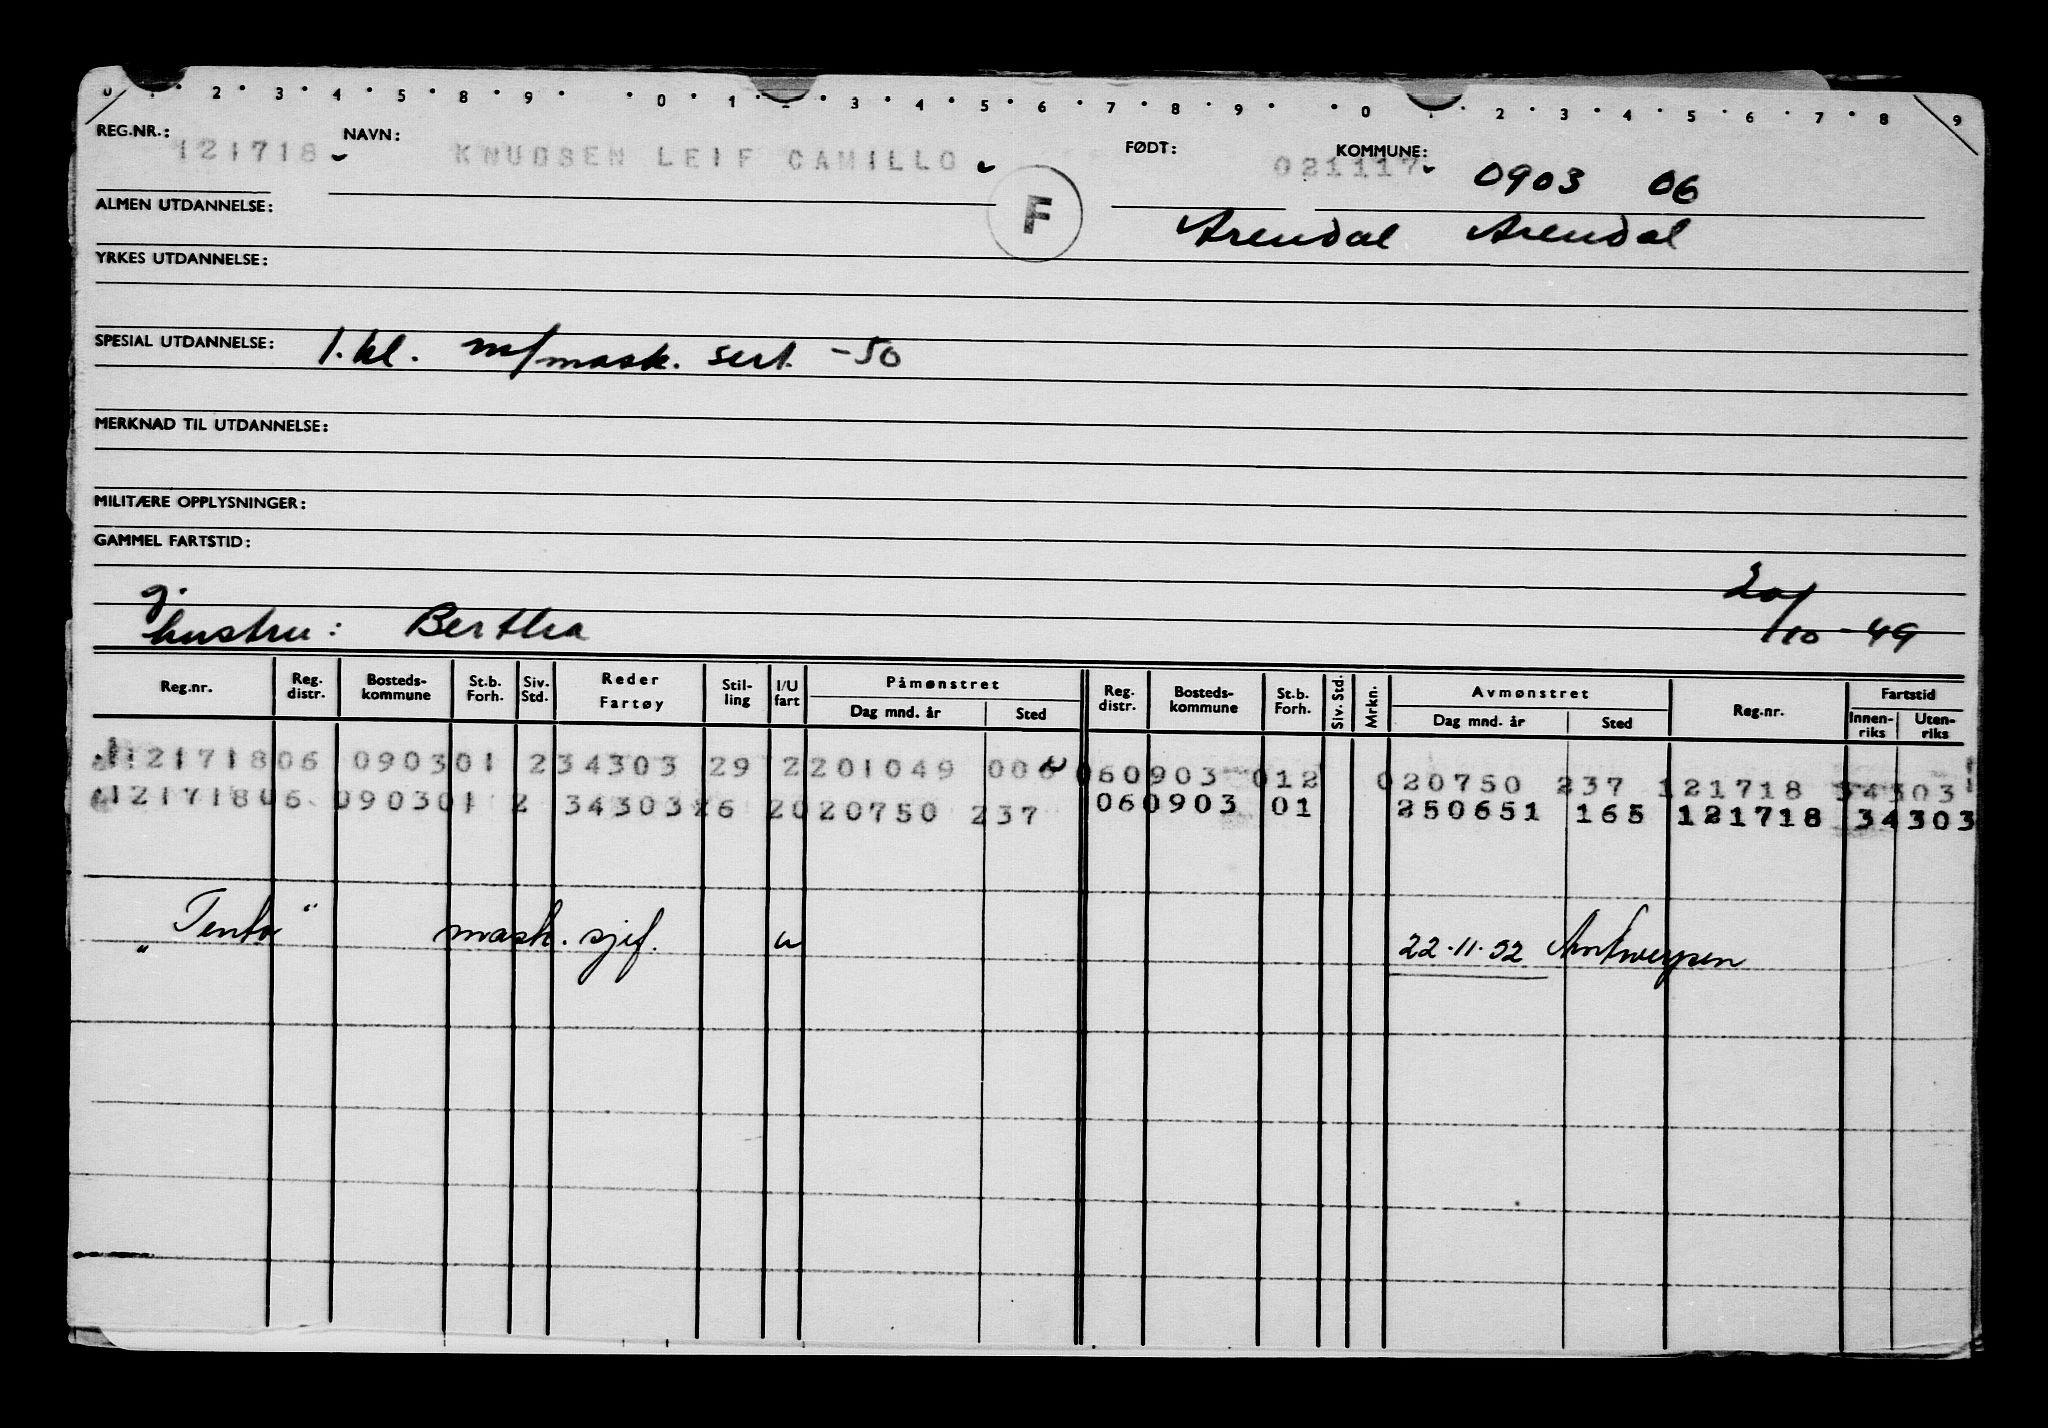 0 · · 2 · 3 · 4 · 5 · 8 · 9 · · 0 · 1 · · 3 · 4 · 5 · 6 · 7 · 8 · 9 · · 0 · · 2 · 3 · 4 · 5 · 6 · 7 · 8 9
REG.NR.: 121718 NAVN: KNUDSEN LEIF CAMILLO FØDT: 021117 KOMMUNE: 0903 06
ALMEN UTDANNELSE: F Arendal Arendal
YRKES UTDANNELSE:
SPESIAL UTDANNELSE: 1.kl. m/mask. sert. -50
MERKNAD TIL UTDANNELSE:
MILITÆRE OPPLYSNINGER:
GAMMEL FARTSTID:
g.
hustru: Bertha 20/10-49
Reg.nr. Reg. distr. Bosteds-kommune St.b. Forh. Siv. Std. Reder Fartøy Stil-ling I/U fart Påmønstret Dag mnd. år Sted Reg. distr. Bosteds-kommune St.b. Forh. Siv. Std. Mrkn. Avmønstret Dag mnd. år Sted Reg.nr. Fartstid Innen-riks Uten-riks
121718 06 0903 01 2 34303 29 2 201049 006 06 0903 01 2 020750 237 121718 34303
121718 06 0903 01 2 34303 26 2 020750 237 06 0903 01 250651 165 121718 34303
mask. sjef. u 22.11.52 Antwerpen